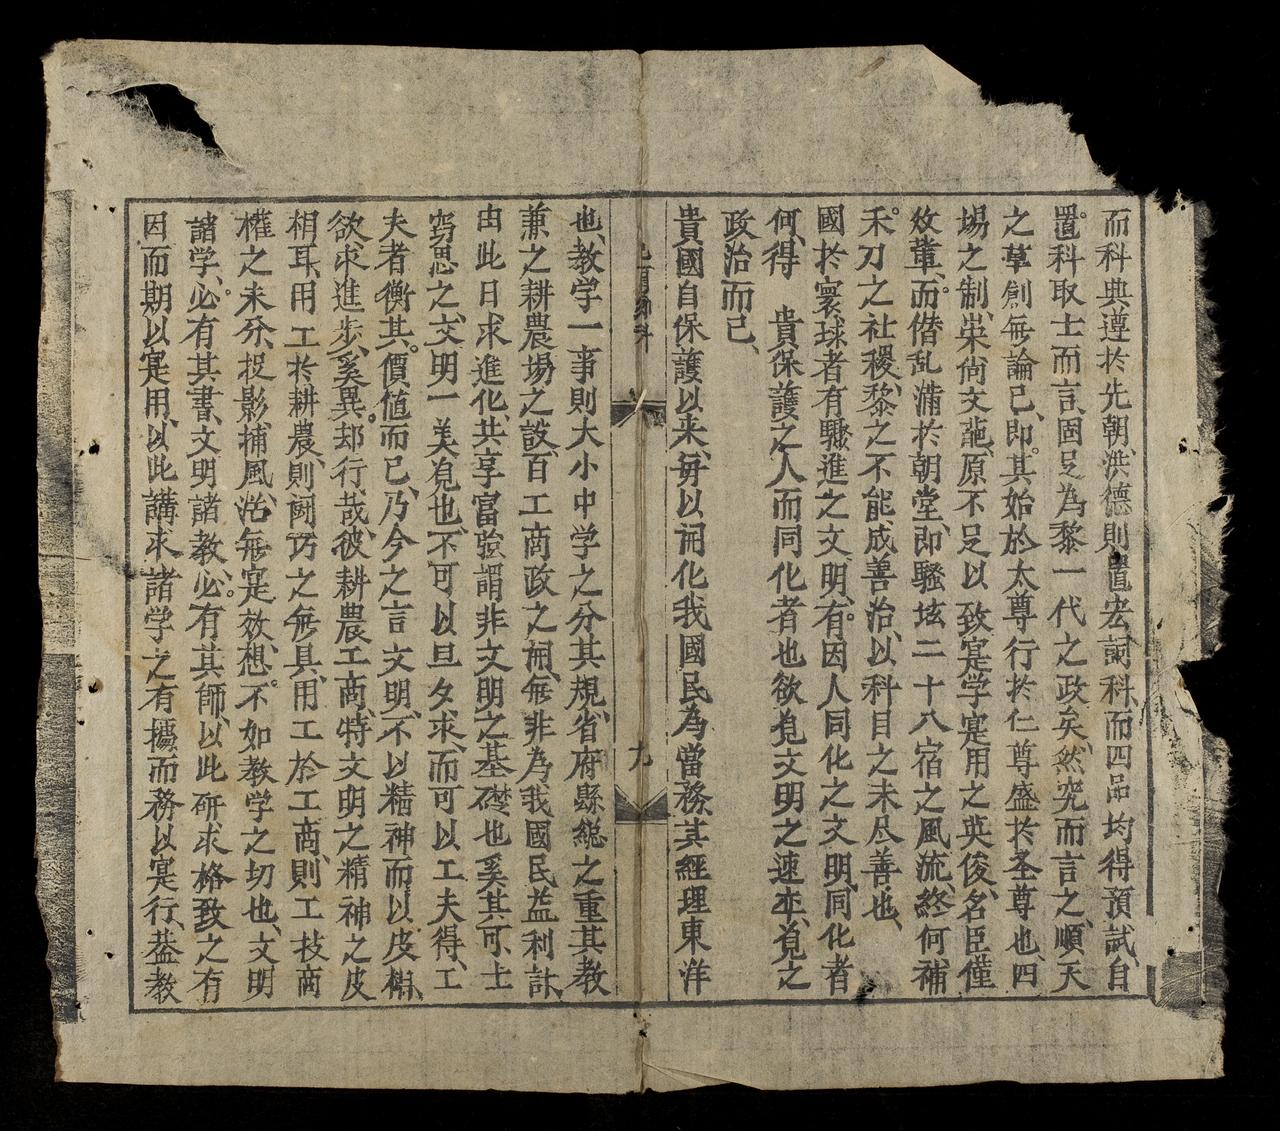 而科典遵於先朝、洪德則置宏詞科、而四品均得預試、自
置科取士而言、固足為黎一代之政矣、然究而言之、順天
之草創無論已、即其始於太尊行於仁尊盛於圣尊也、四
場之制、崇尚文藝、原不足以致寔学寔用之英俊、名臣僅
效輩、而僭乱滿於朝堂、即騷坛二十八宿之風流、終何補
禾刀之社稷、黎之不能成善治、以科目之未尽善也、
國於寰球者有驟進之文明、有因人同化之文明、同化者
何、得　貴保護之人而同化者也、欲覓文明之速率、覓之
政治而已、
貴國自保護以来、毎以開化我國民為當務、其經理東洋
鄉科
九
也、教学一事則大小中学之分其規、省府縣總之重其教
兼之耕農場之設、百工商政之開、無非為我國民益利計、
由此日求進化、共享富強、謂非文明之基礎也奚其可、上
窃思之、文明一美覓也、不可以旦夕求、而可以工夫得、工
夫者衡其價値而已、乃今之言文明、不以精神而以皮相、
欲求進步、奚異却行哉、彼耕農工商、特文明之精神之皮
相耳、用工於耕農、則閼巧之無具、用工於工商、則工技商
權之未分、捉影捕風、浩無寔效、想不如教学之切也、文明
諸学、必有其書、文明諸教、必有其師、以此研求格致之有
因、而期以寔用、以此講求諸学之有據、而務以寔行、葢教